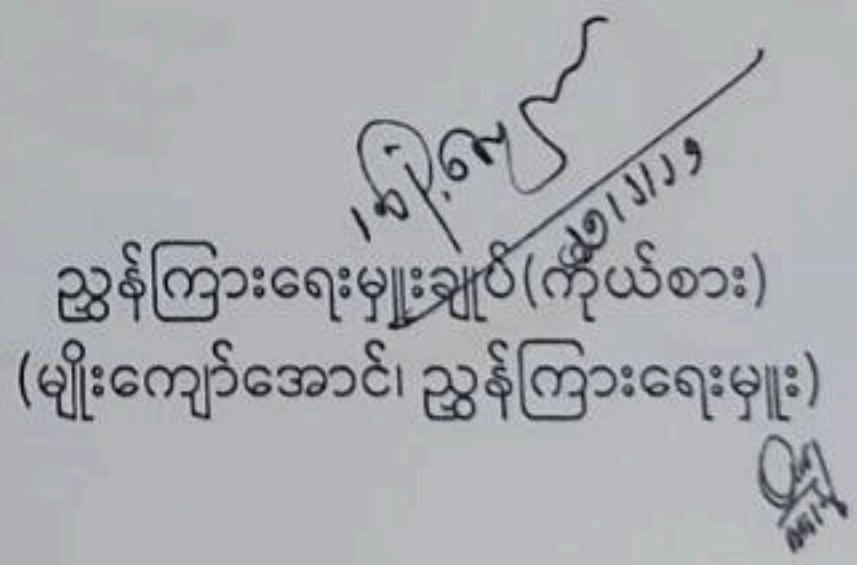 ညွှန်ကြားရေးမှူးချုပ်(ကိုယ်စား)
(မျိုးကျော်အောင်၊ ညွှန်ကြားရေးမှူး)